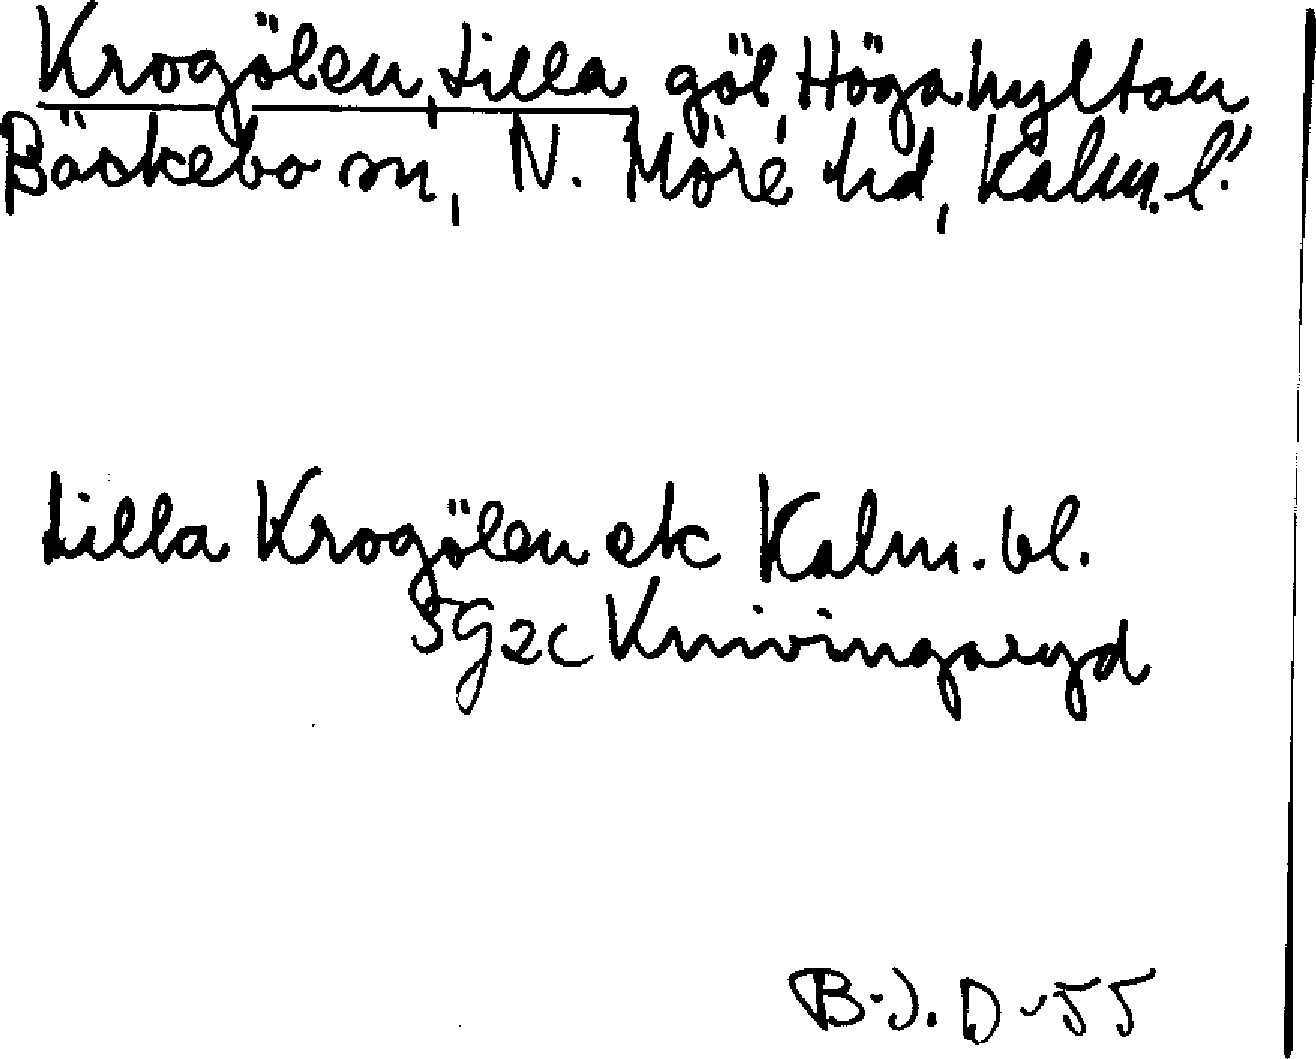 Krogölen, Lilla göl Högahyltan
Bäckebo sn, N. Möre hd, Kalm. l.
Lilla Krogölen ek Kalm. bl.
5g2c Knivingaryd
B.J. D-55